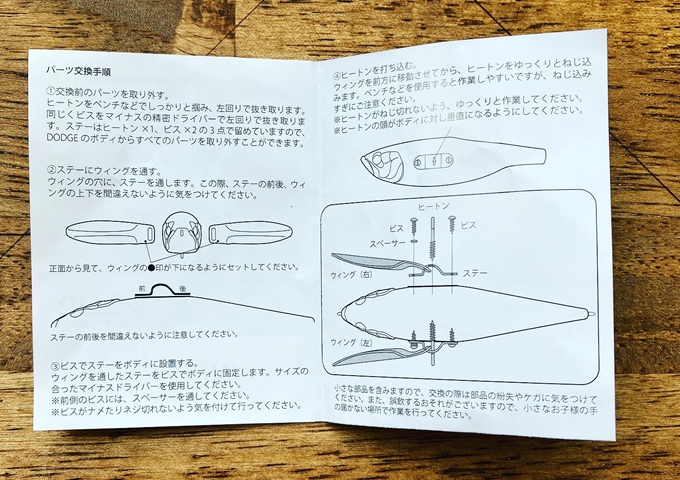 パーツ交換手順
①交換前のパーツを取り外す。
ヒートンをペンチなどでしっかりと掴み、左回りで抜き取ります。
同じくビスをマイナスの精密ドライバーで左回りで抜き取りま
す。ステーはヒートン×1、ビス×2の3点で留めていますので、
DODGEのボディからすべてのパーツを取り外すことができます。
②ステーにウィングを通す。
ウィングの穴に、ステーを通します。この際、ステーの前後、ウィ
ングの上下を間違えないように気をつけてください。
正面から見て、ウィングの●印が下になるようにセットしてください。
前 後
ステーの前後を間違えないように注意してください。
③ビスでステーをボディに設置する。
ウィングを通したステーをビスでボディに固定します。サイズの
合ったマイナスドライバーを使用してください。
※前側のビスには、スペーサーを通してください。
※ビスがナメたりネジ切れないよう気を付けて行ってください。
④ヒートンを打ち込む。
ウィングを前方に移動させてから、ヒートンをゆっくりとねじ込
みます。ペンチなどを使用すると作業しやすいですが、ねじ込み
すぎにご注意ください。
※ヒートンがねじ切れないよう、ゆっくりと作業してください。
※ヒートンの頭がボディに対し垂直になるようにしてください。
ヒートン
ビス ビス
スペーサー
ウィング（右） ステー
ウィング（左）
小さな部品を含みますので、交換の際は部品の紛失やケガに気をつけて
ください。また、誤飲するおそれがございますので、小さなお子様の手
の届かない場所で作業を行ってください。